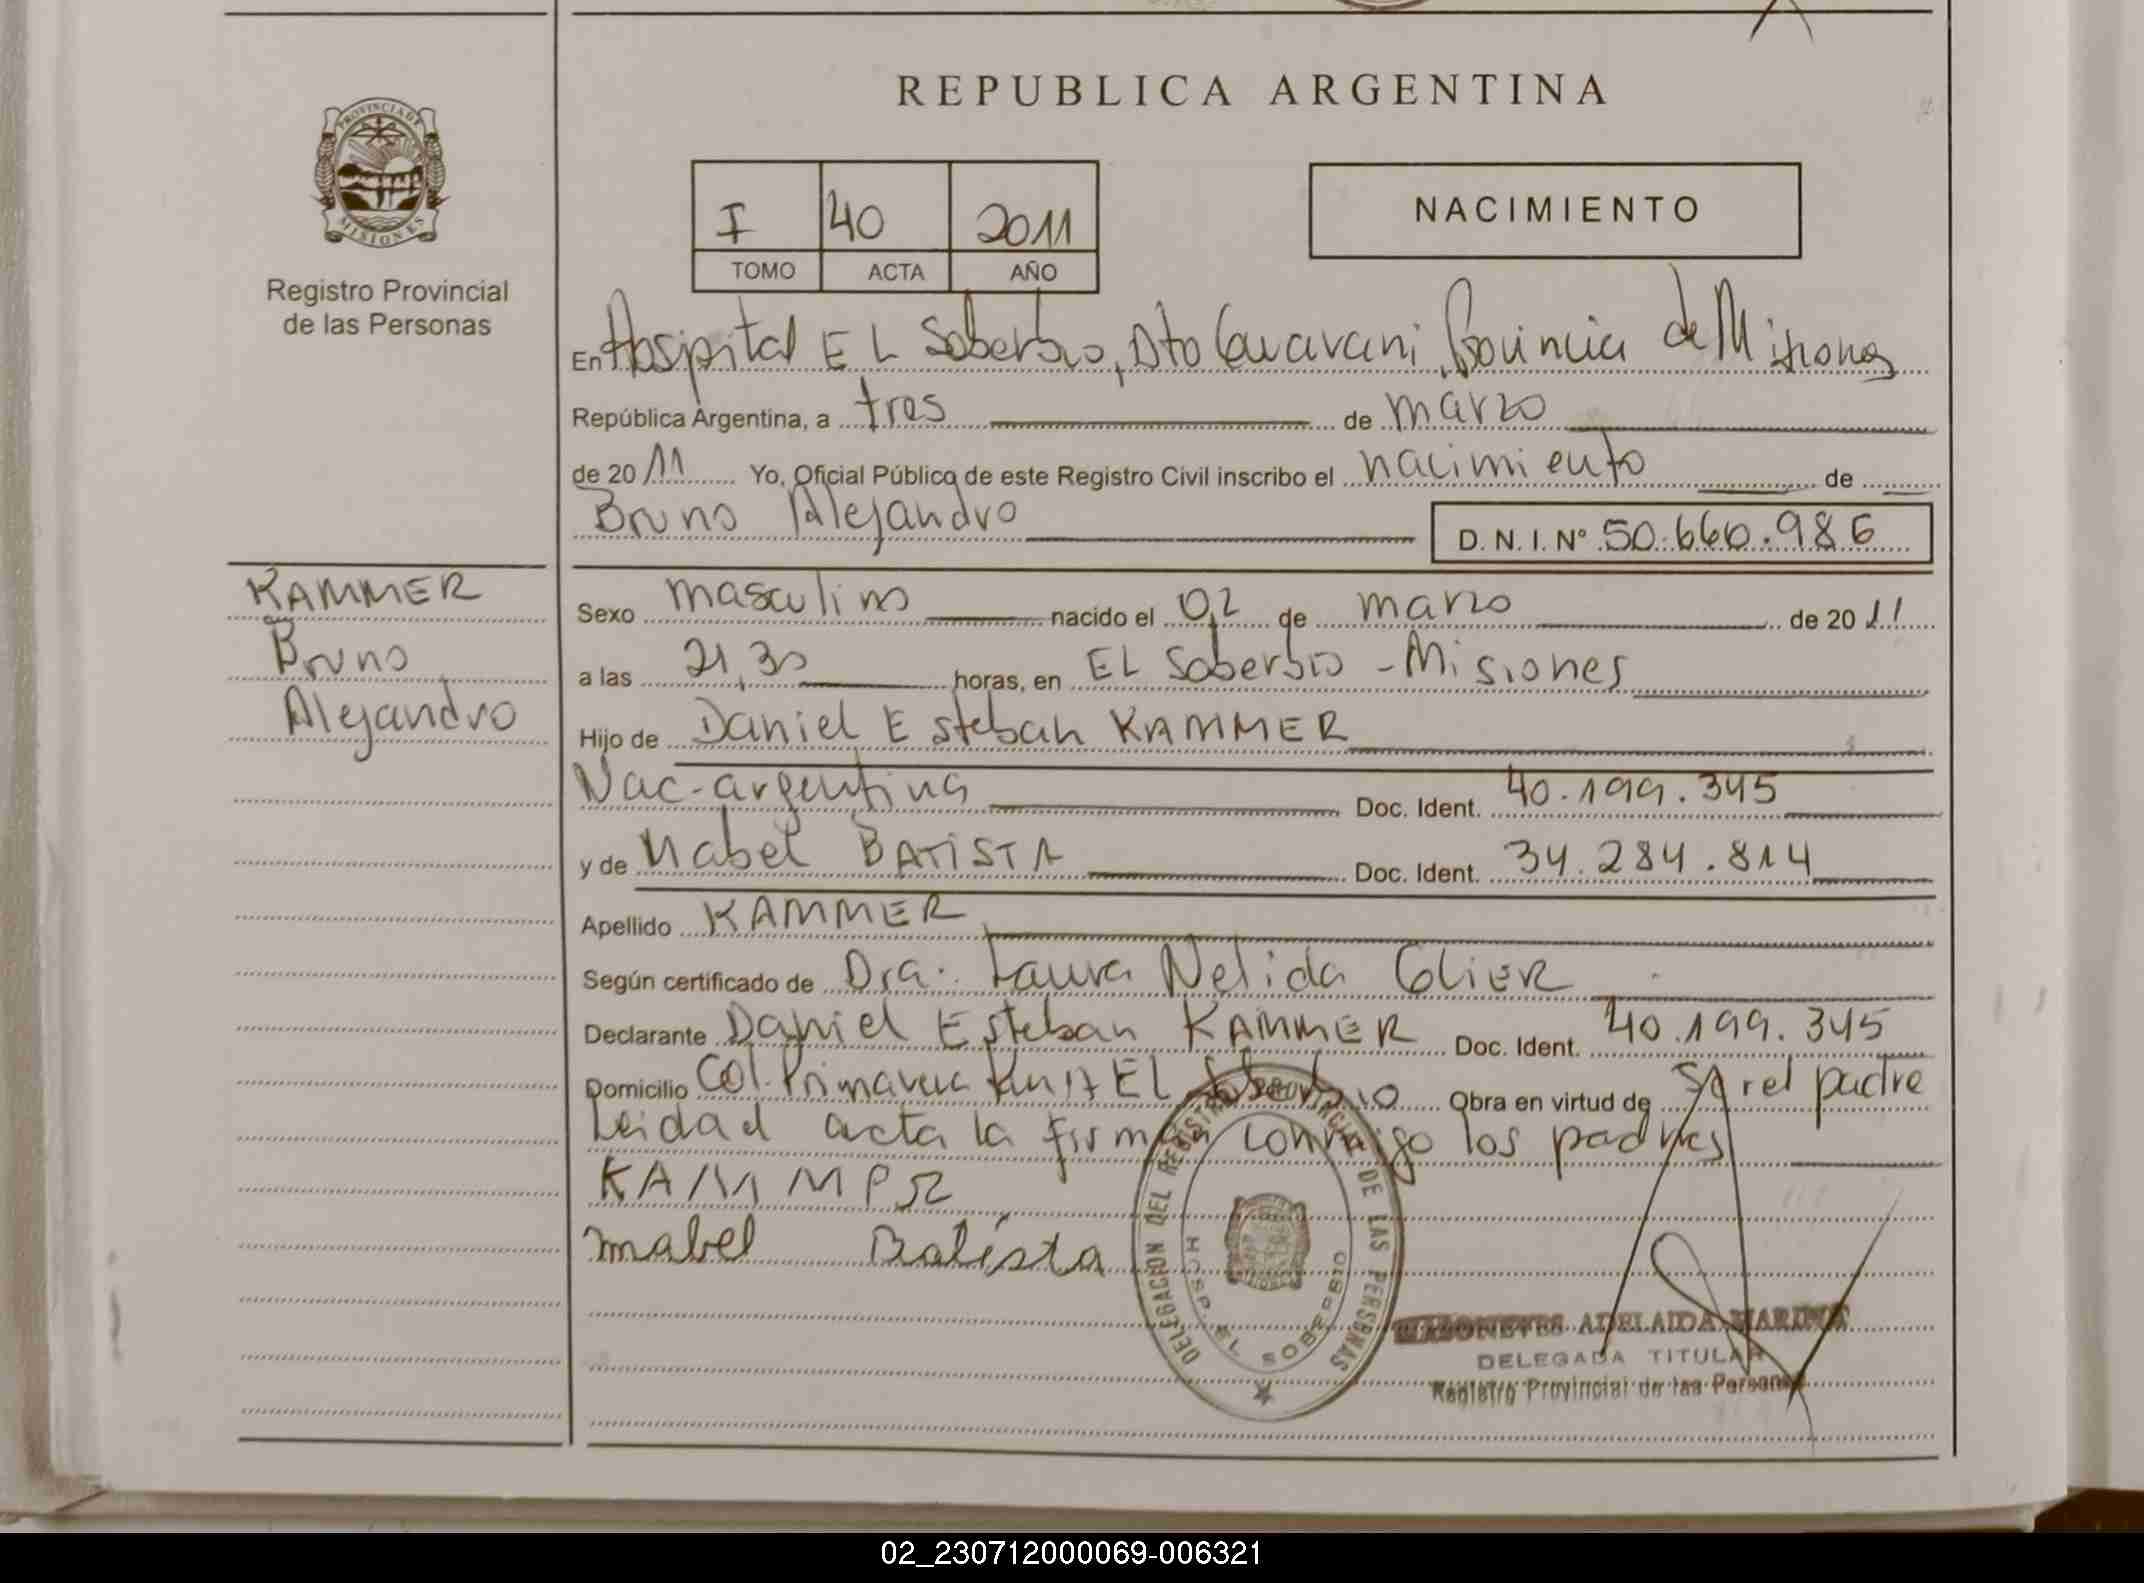 REPUBLICA ARGENTINA
PROVINCIA DE
MISIONES
Registro Provincial
de las Personas
I 40 2011
TOMO ACTA AÑO
NACIMIENTO
En Hospital EL Soberbio, Dto Guarani, Provincia de Misiones
República Argentina, a tres de marzo
de 2011 Yo, Oficial Público de este Registro Civil inscribo el nacimiento de
Bruno Alejandro
D. N. I. Nº 50.660.986
KAMMER
Bruno
Alejandro
Sexo masculino nacido el 02 de marzo de 2011
a las 21,30 horas, en EL Soberbio - Misiones
Hijo de Daniel Esteban KAMMER
Nac. argentina Doc. Ident. 40.199.345
y de Mabel BATISTA Doc. Ident. 34.284.814
Apellido KAMMER
Según certificado de Dra. Laura Nelida
Declarante Daniel Esteban KAMMER Doc. Ident. 40.199.345
Domicilio Col. Primavera EL Soberbio Obra en virtud de ser el padre
Leida el acta la firman conmigo los padres
KAMMER
mabel Batista
DELEGACION DEL REGISTRO PROVINCIAL DE LAS PERSONAS
HOSP. EL SOBERBIO
ADELAIDA MARINA
DELEGADA TITULAR
Registro Provincial de las Personas
02_230712000069-006321